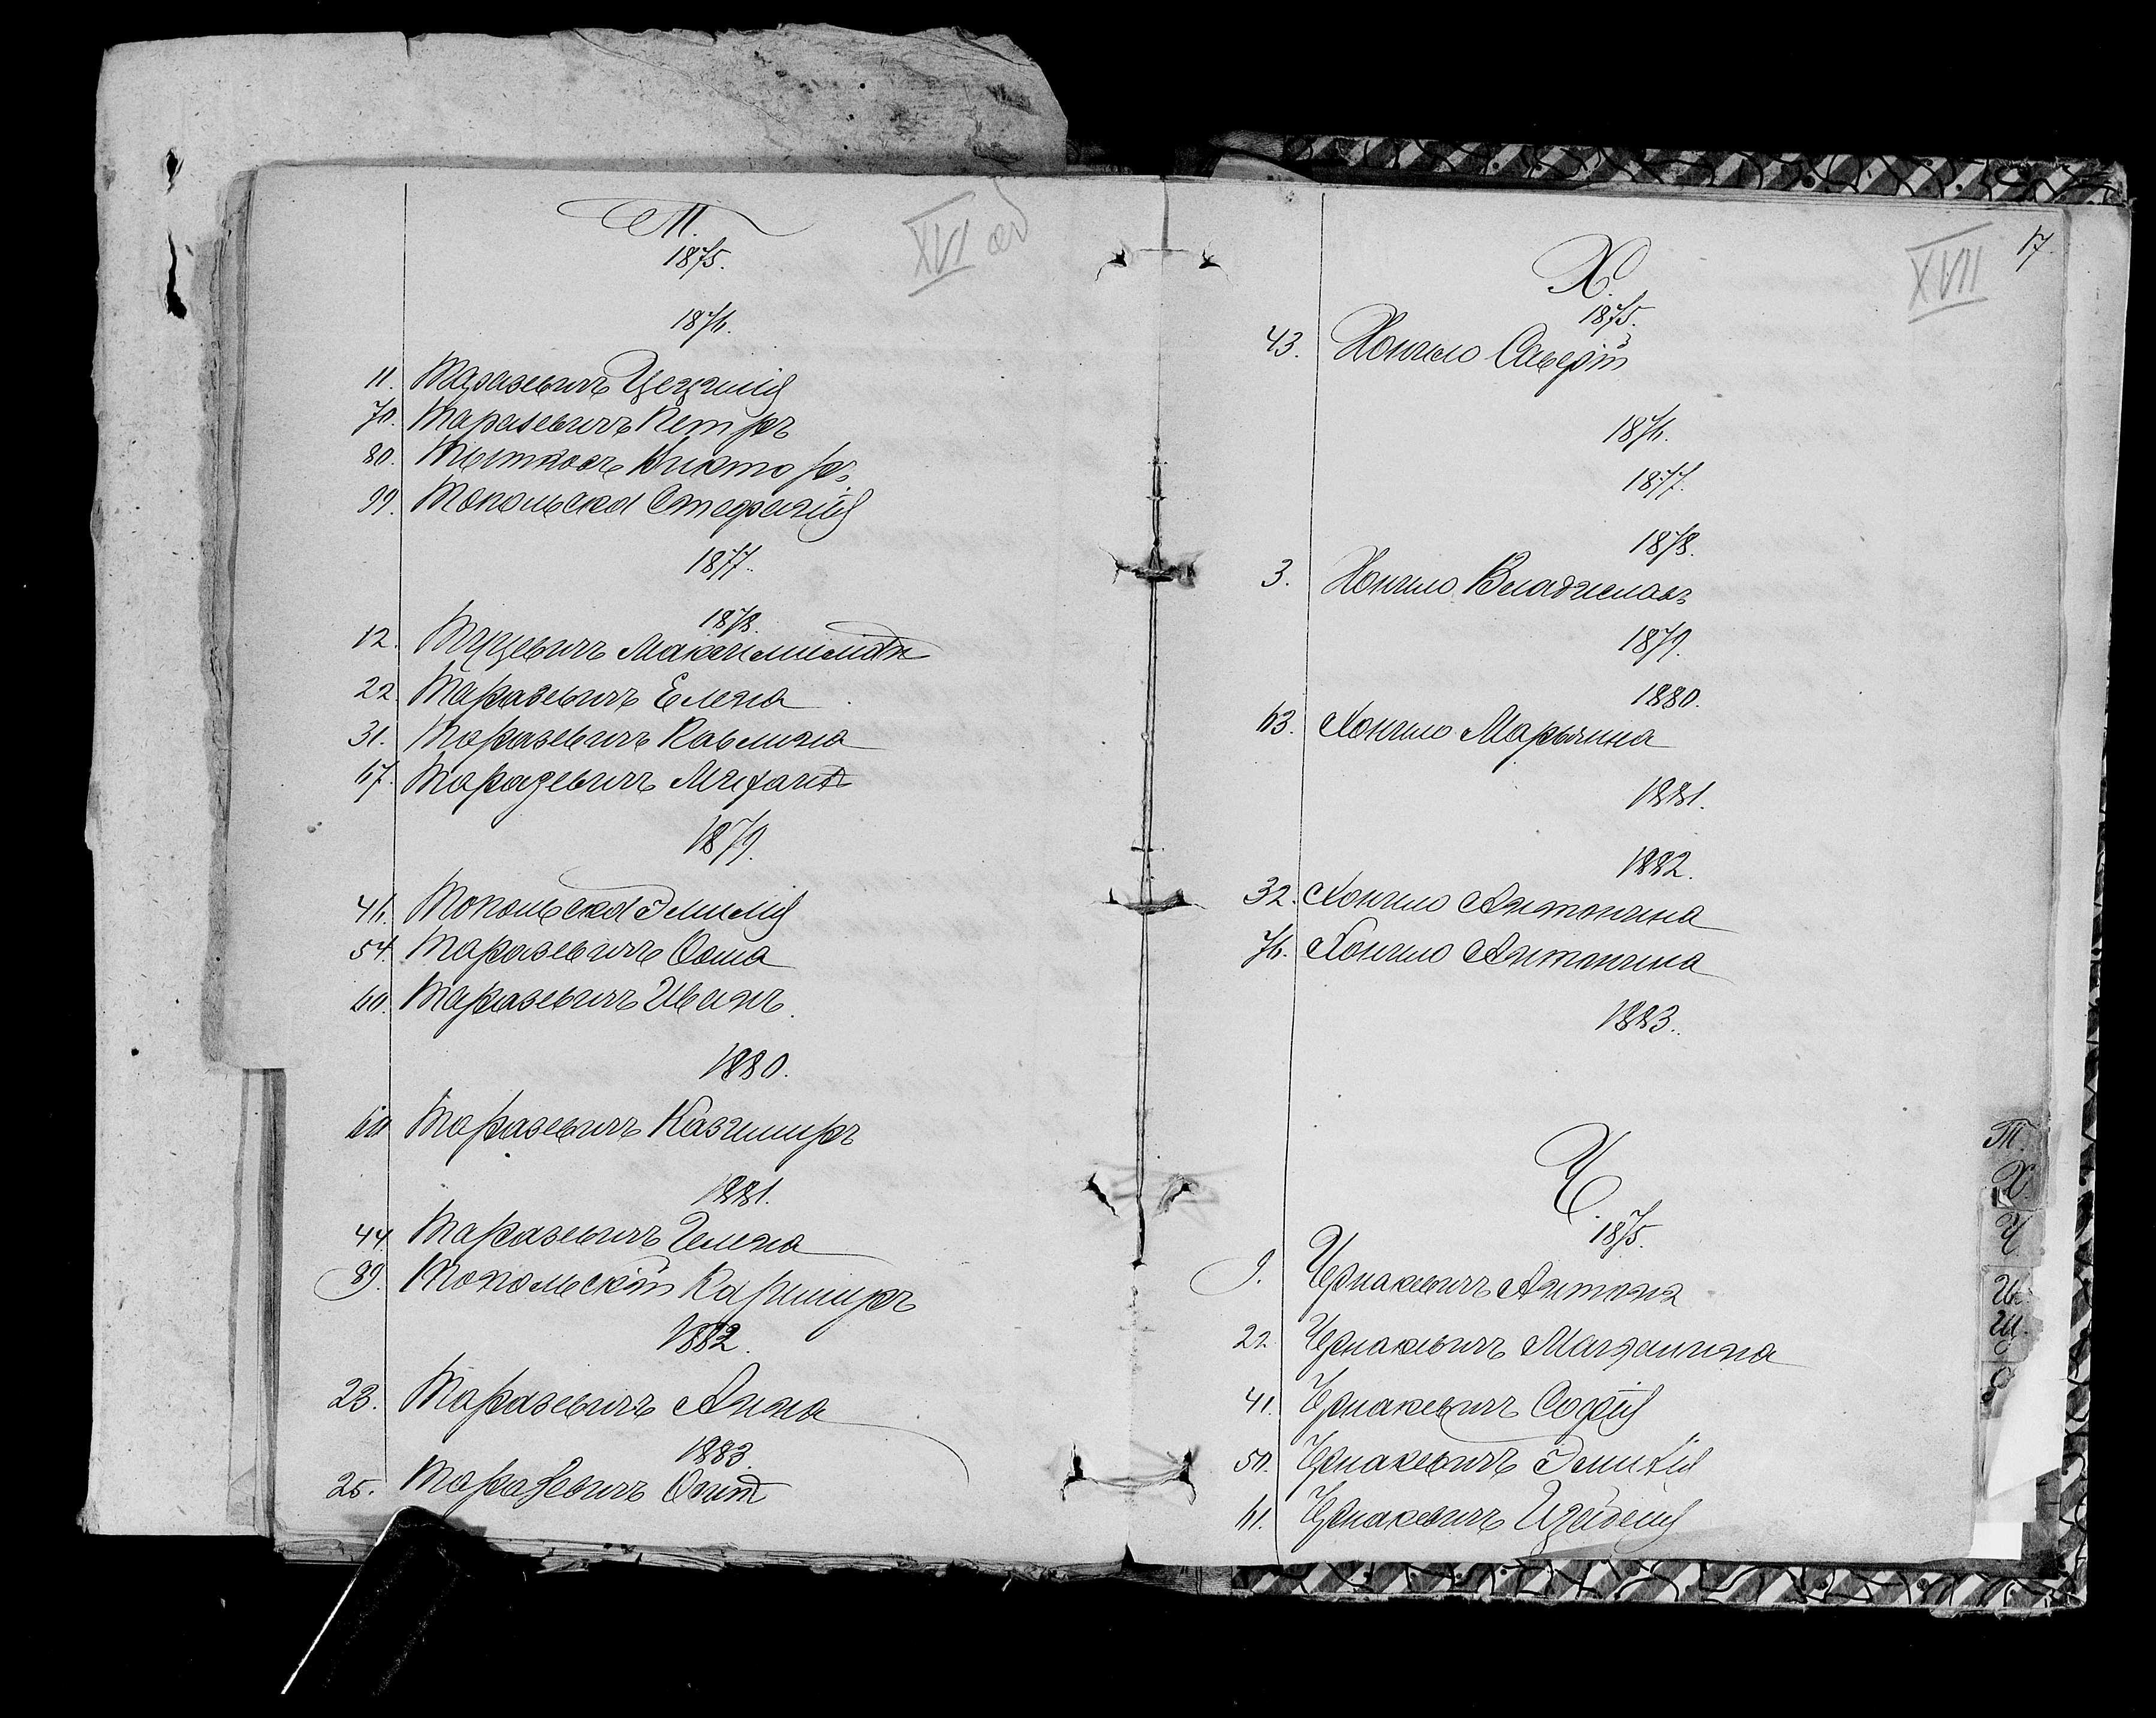 Т.
XVI об
1875.
1876.
11. Таразевичъ Цецилія
70. Таразевичъ Петръ
80. Тытковъ Викторъ.
99. Топольская Стефанія
1877.
1878.
12. Туцевичъ Максимиліан
22. Таразевичъ Елена
31. Таразевичъ Павлина
67. Таразевичъ Михаил
1879.
46. Топольская Эмилія
54. Таразевичъ Фома
60. Таразевичъ Иванъ.
1880.
60 Таразевичъ Казимиръ
1881.
44. Таразевичъ Гелена
89. Топольскій Казимиръ
1882.
23. Таразевичъ Анна
1883.
25. Таразевичъ
17.
XVII
Х.
1875.
43. Хончило
1876.
1877.
1878.
3. Хончило Владиславъ
1879.
1880.
63. Хончило Марьянна
1881.
1882.
32. Хончило Антонина
76. Хончило Антонина
1883.
Ч.
1875.
9. Чернакевичъ Антонъ
22 Чернакевичъ Магдалина
41. Чернакевичъ Софія
50. Чернакевичъ Эмилія
61. Чернакевичъ
Т.
Х.
Ч
Ш.
Щ.